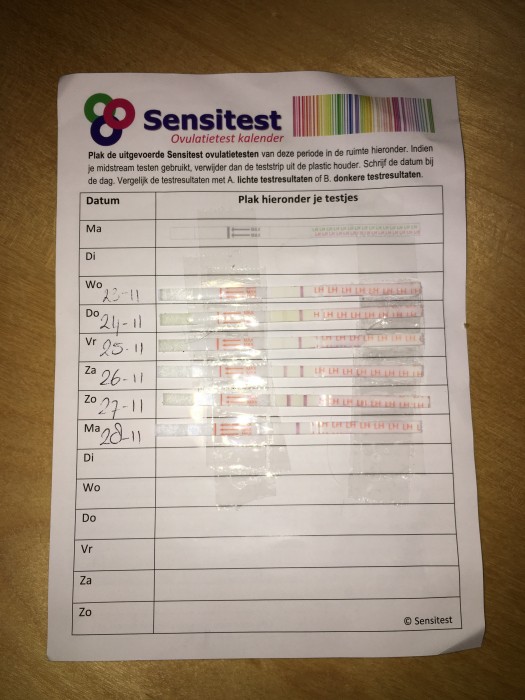 Sensitest
Ovulatietest kalender
Plak de uitgevoerde Sensitest ovulatietesten van deze periode in de ruimte hieronder. Indien
je midstream testen gebruikt, verwijder dan de teststrip uit de plastic houder. Schrijf de datum bij
de dag. Vergelijk de testresultaten met A. lichte testresultaten of B. donkere testresultaten.
Datum Plak hieronder je testjes
Ma
Di
Wo 23-11 LH LH LH LH LH LH LH LH
Do 24-11 LH LH LH LH LH LH LH
Vr 25-11 LH LH LH LH LH LH LH
Za 26-11 LH LH LH LH LH LH LH
Zo 27-11 LH LH LH LH LH LH LH
Ma 28-11 LH LH LH LH LH LH LH
Di
Wo
Do
Vr
Za
Zo
© Sensitest